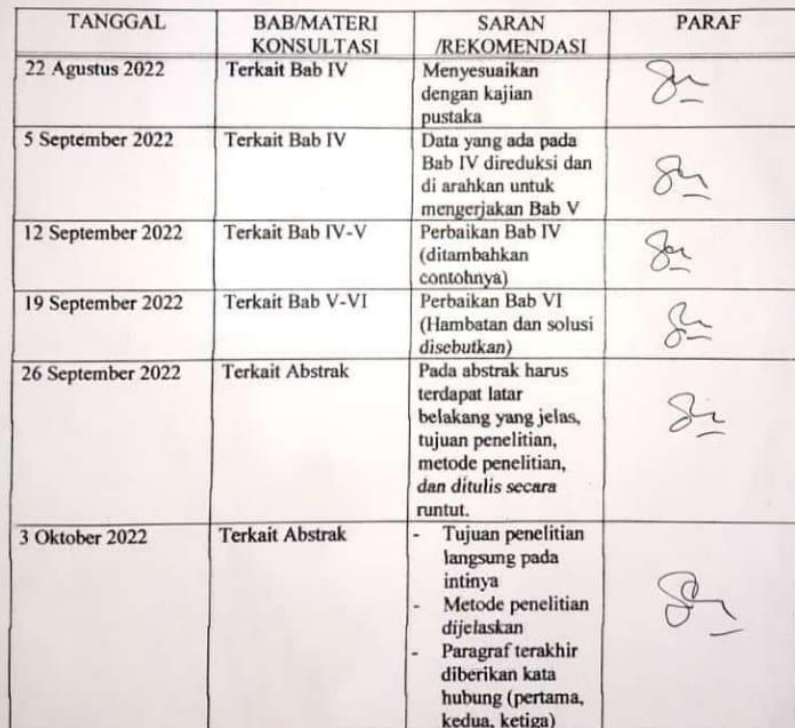 TANGGAL
BAB/MATERI
KONSULTASI
SARAN
/REKOMENDASI
PARAF
22 Agustus 2022
Terkait Bab IV
Menyesuaikan
dengan kajian
pustaka
5 September 2022
Terkait Bab IV
Data yang ada pada
Bab IV direduksi dan
di arahkan untuk
mengerjakan Bab V
12 September 2022
Terkait Bab IV-V
Perbaikan Bab IV
(ditambahkan
contohnya)
19 September 2022
Terkait Bab V-VI
Perbaikan Bab VI
(Hambatan dan solusi
disebutkan)
26 September 2022
Terkait Abstrak
Pada abstrak harus
terdapat latar
belakang yang jelas,
tujuan penelitian,
metode penelitian,
dan ditulis secara
runtut.
3 Oktober 2022
Terkait Abstrak
- Tujuan penelitian
langsung pada
intinya
- Metode penelitian
dijelaskan
- Paragraf terakhir
diberikan kata
hubung (pertama,
kedua, ketiga)